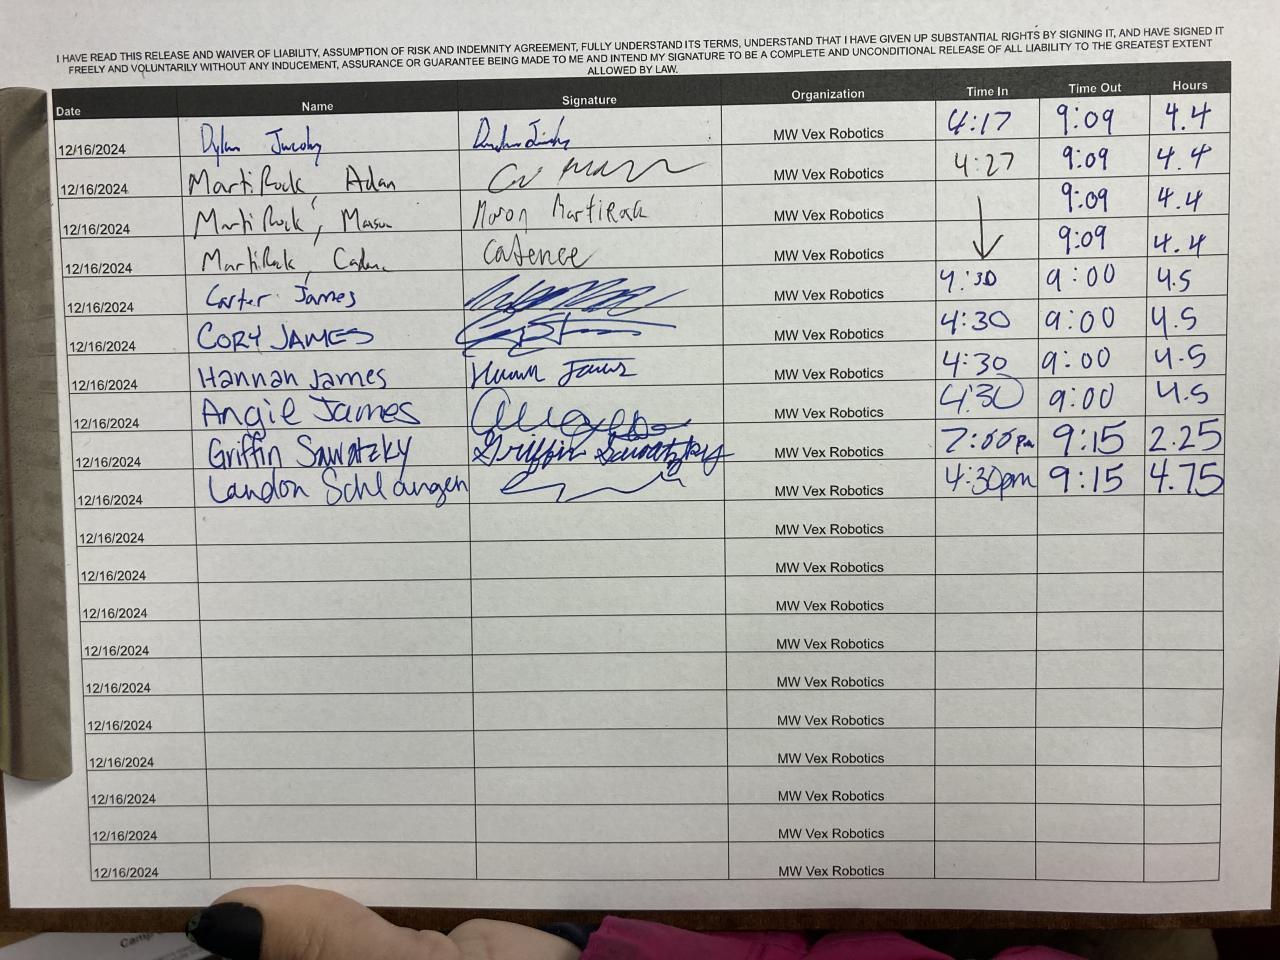 I HAVE READ THIS RELEASE AND WAIVER OF LIABILITY, ASSUMPTION OF RISK AND INDEMNITY AGREEMENT, FULLY UNDERSTAND ITS TERMS, UNDERSTAND THAT I HAVE GIVEN UP SUBSTANTIAL RIGHTS BY SIGNING IT, AND HAVE SIGNED IT
FREELY AND VOLUNTARILY WITHOUT ANY INDUCEMENT, ASSURANCE OR GUARANTEE BEING MADE TO ME AND INTEND MY SIGNATURE TO BE A COMPLETE AND UNCONDITIONAL RELEASE OF ALL LIABILITY TO THE GREATEST EXTENT
ALLOWED BY LAW.
Date Name Signature Organization Time In Time Out Hours
12/16/2024 Dylan Jacoby MW Vex Robotics 4:17 9:09 4.4
12/16/2024 MartiRock, Adan MW Vex Robotics 4:27 9:09 4.4
12/16/2024 MartiRock, Mason MartiRock MW Vex Robotics 9:09 4.4
12/16/2024 MartiRock, Caden Catence MW Vex Robotics 9:09 4.4
12/16/2024 Carter James MW Vex Robotics 4:30 9:00 4.5
12/16/2024 CORY JAMES MW Vex Robotics 4:30 9:00 4.5
12/16/2024 Hannah James MW Vex Robotics 4:30 9:00 4.5
12/16/2024 Angie James MW Vex Robotics 4:30 9:00 4.5
12/16/2024 Griffin Sawatzky Griffin Sawatzky MW Vex Robotics 7:00pm 9:15 2.25
12/16/2024 Landon Schlangen MW Vex Robotics 4:30pm 9:15 4.75
12/16/2024 MW Vex Robotics
12/16/2024 MW Vex Robotics
12/16/2024 MW Vex Robotics
12/16/2024 MW Vex Robotics
12/16/2024 MW Vex Robotics
12/16/2024 MW Vex Robotics
12/16/2024 MW Vex Robotics
12/16/2024 MW Vex Robotics
12/16/2024 MW Vex Robotics
12/16/2024 MW Vex Robotics
Camp